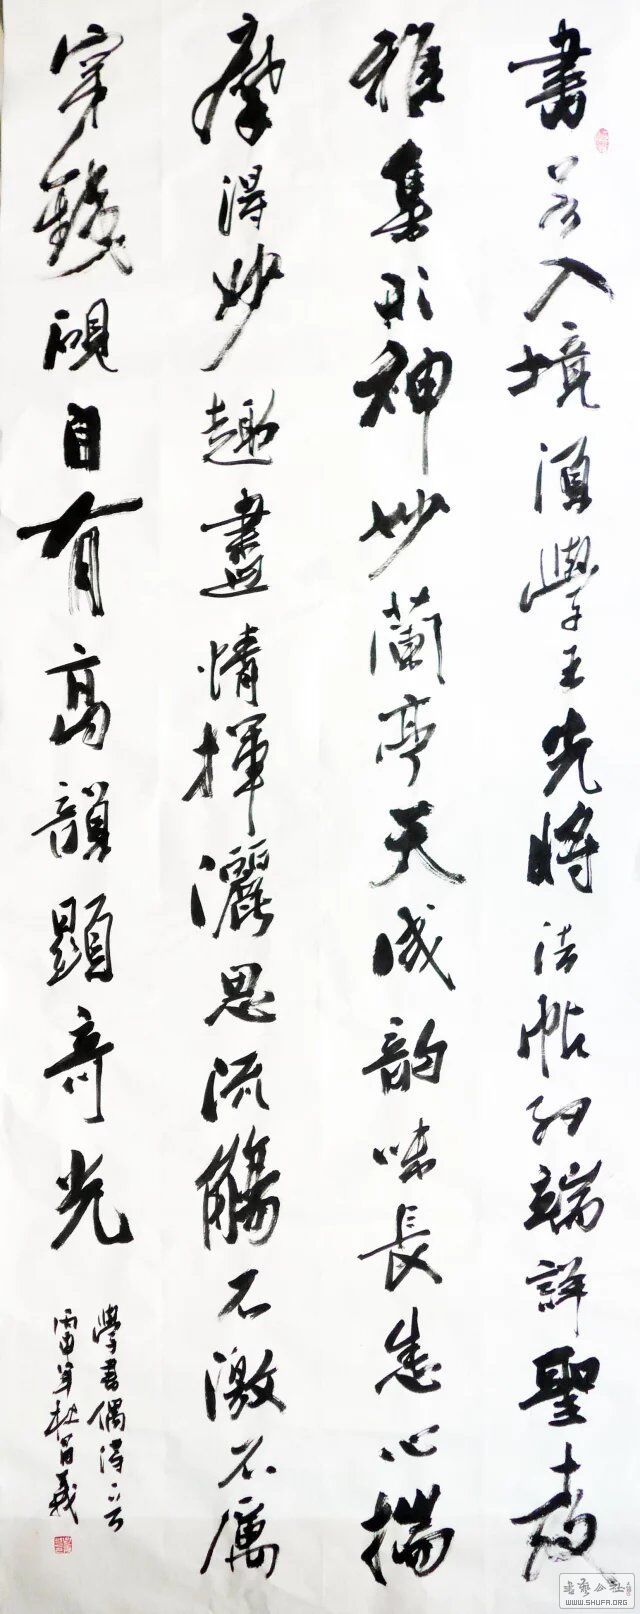 書若入境須學王先將法帖細端詳聖教
雅集形神妙蘭亭天成韵味長悉心揣
摩得妙趣盡情揮灑思流觴不激不厲
穿鐵硯自有高韻顯奇光
學書偶得
书艺公社
WWW.SHUFA.ORG